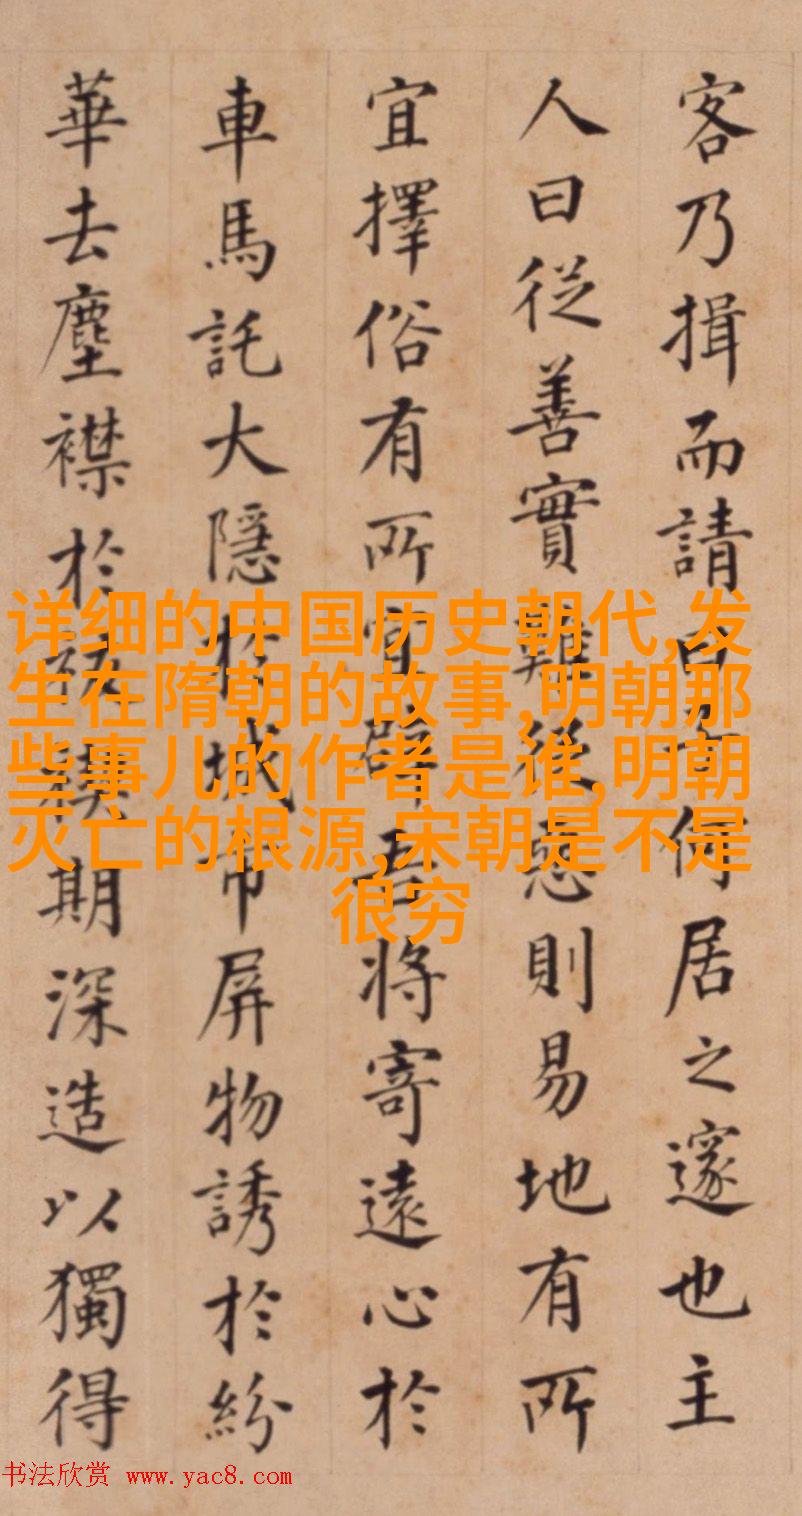 客乃揖而請曰何居之邃也主
人曰從善實難從惡則易地有所
宜擇俗有所宜避吾將寄遠心於
車馬託大隱於城市屏物誘於紛
華去塵襟於期深造以獨得
详细的中国历史朝代,发
生在隋朝的故事,明朝那
些事儿的作者是谁,明朝
灭亡的根源,宋朝是不是
很穷
书法欣赏 www.yac8.com